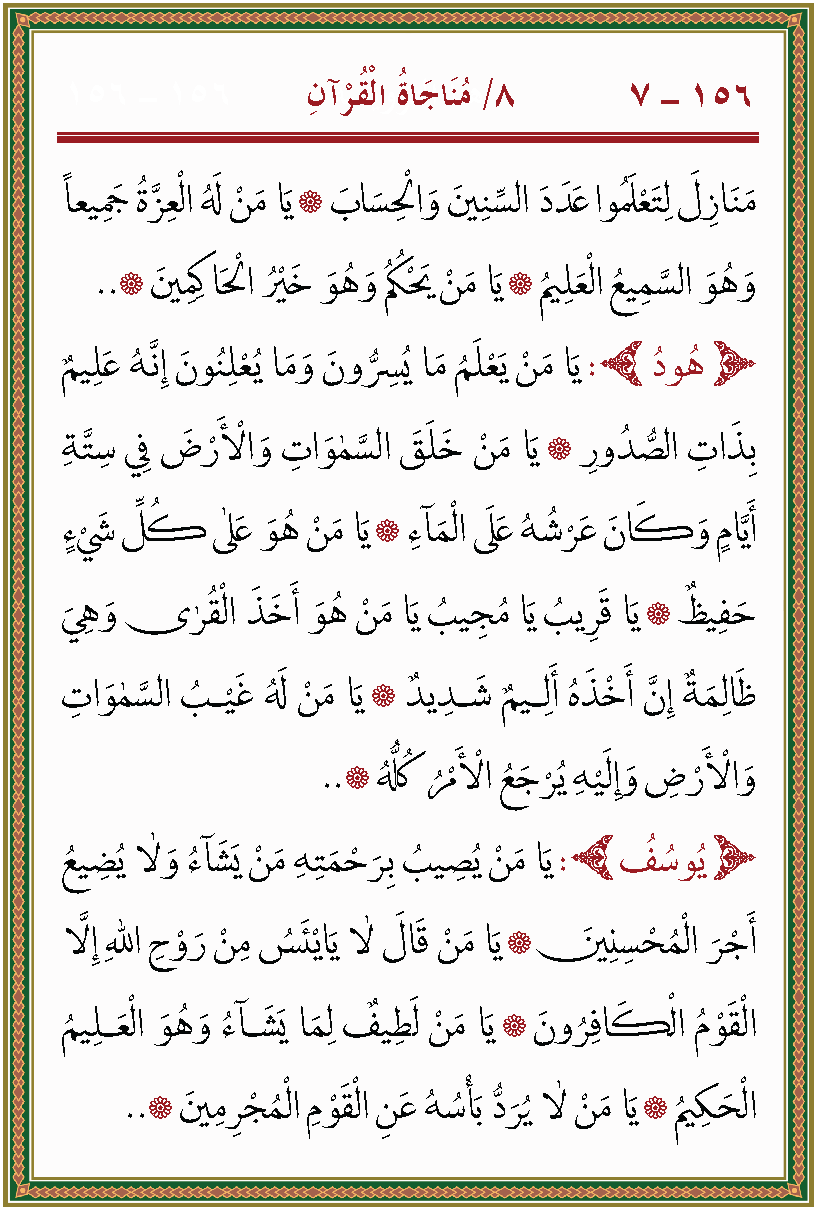 ١٥٦ – ٧ ٨/ مُنَاجَاةُ الْقُرْآنِ
مَنَازِلَ لِتَعْلَمُوا عَدَدَ السِّنِينَ وَالْحِسَابَ ۞ يَا مَنْ لَهُ الْعِزَّةُ جَمِيعاً
وَهُوَ السَّمِيعُ الْعَلِيمُ ۞ يَا مَنْ يَحْكُمُ وَهُوَ خَيْرُ الْحَاكِمِينَ ۞..
﴿ هُودُ ﴾: يَا مَنْ يَعْلَمُ مَا يُسِرُّونَ وَمَا يُعْلِنُونَ إِنَّهُ عَلِيمٌ
بِذَاتِ الصُّدُورِ ۞ يَا مَنْ خَلَقَ السَّمٰوَاتِ وَالْأَرْضَ فِي سِتَّةِ
أَيَّامٍ وَكَانَ عَرْشُهُ عَلَى الْمَآءِ ۞ يَا مَنْ هُوَ عَلٰى كُلِّ شَيْءٍ
حَفِيظٌ ۞ يَا قَرِيبُ يَا مُجِيبُ يَا مَنْ هُوَ أَخَذَ الْقُرٰى وَهِيَ
ظَالِمَةٌ إِنَّ أَخْذَهُ أَلِيمٌ شَدِيدٌ ۞ يَا مَنْ لَهُ غَيْبُ السَّمٰوَاتِ
وَالْأَرْضِ وَإِلَيْهِ يُرْجَعُ الْأَمْرُ كُلُّهُ ۞..
﴿ يُوسُفُ ﴾: يَا مَنْ يُصِيبُ بِرَحْمَتِهِ مَنْ يَشَآءُ وَلَا يُضِيعُ
أَجْرَ الْمُحْسِنِينَ ۞ يَا مَنْ قَالَ لَا يَايْئَسُ مِنْ رَوْحِ اللهِ إِلَّا
الْقَوْمُ الْكَافِرُونَ ۞ يَا مَنْ لَطِيفٌ لِمَا يَشَآءُ وَهُوَ الْعَلِيمُ
الْحَكِيمُ ۞ يَا مَنْ لَا يُرَدُّ بَأْسُهُ عَنِ الْقَوْمِ الْمُجْرِمِينَ ۞..